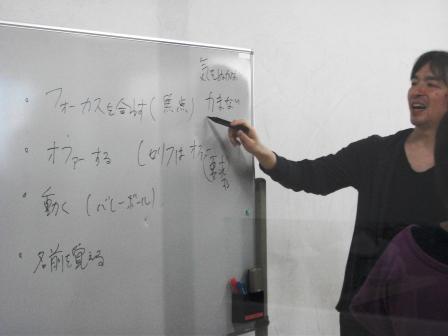 気をぬかない
・フォーカスを合わす(焦点) 力まない
・オファーする (セリフはオファー
・動く (バレーボール)
・名前を覚える